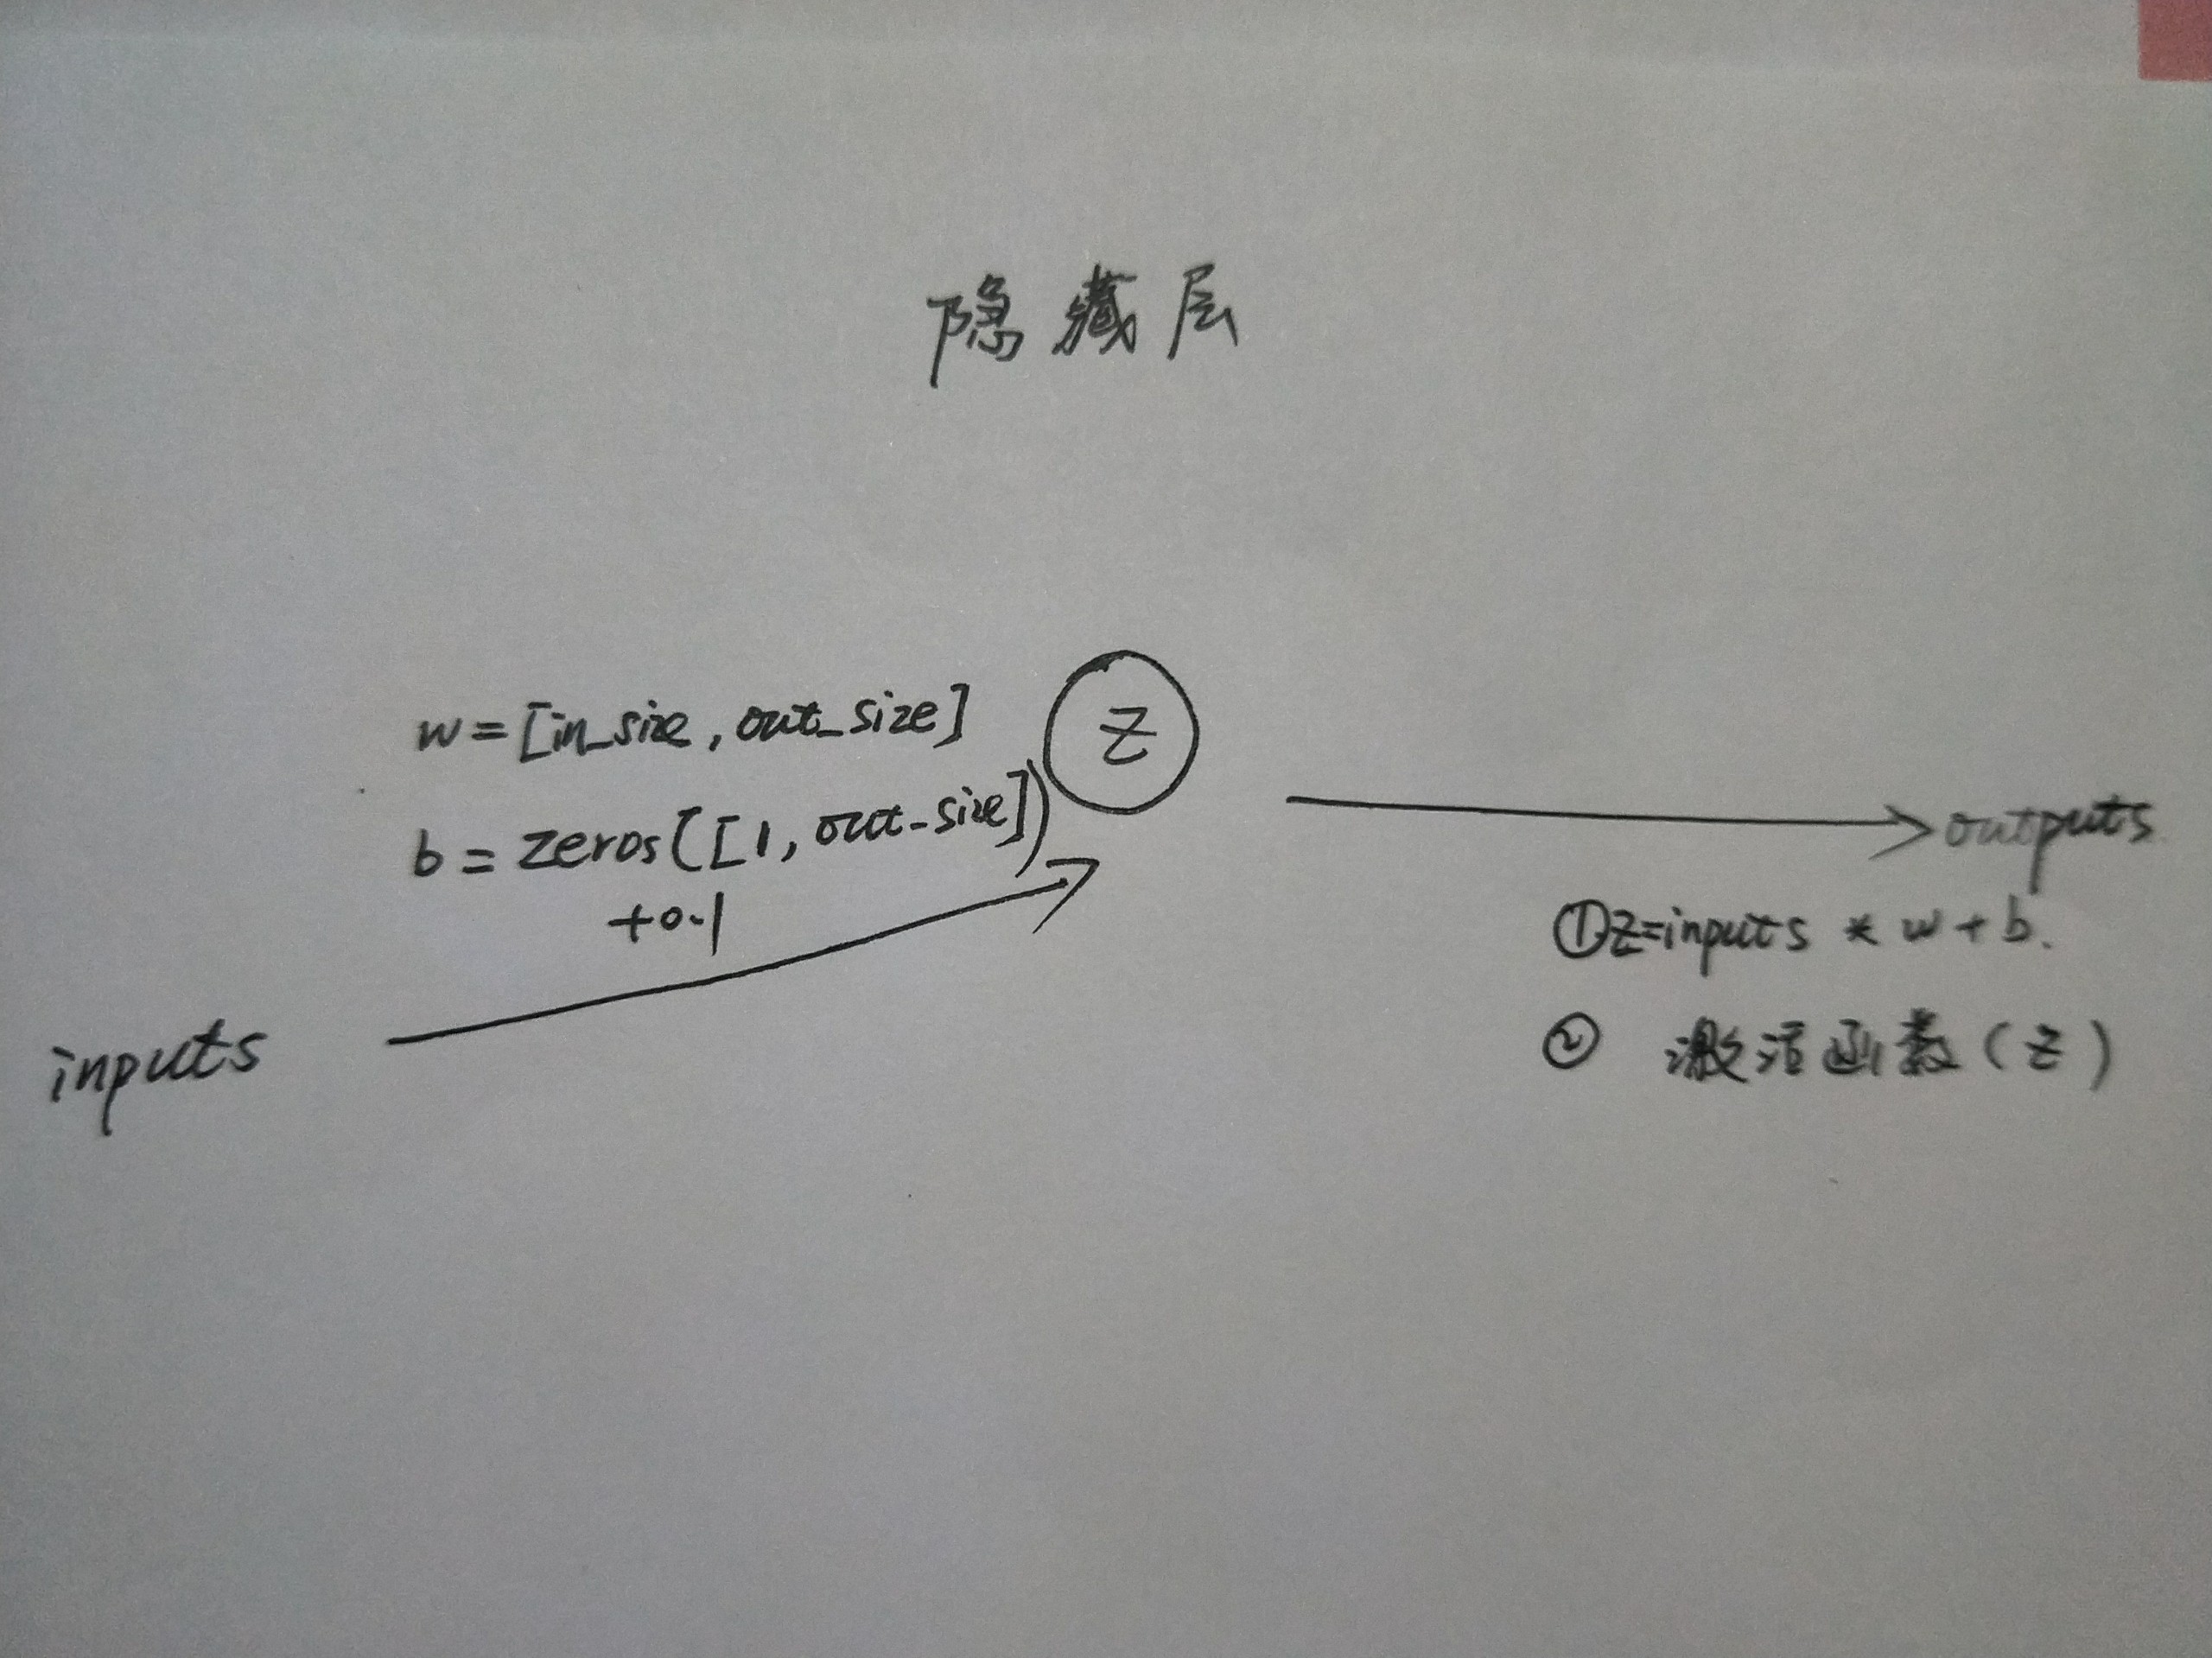 隐藏层
w = [in_size, out_size]
z
b = zeros([1, out_size])
+0.1
outputs
①z=inputs * w + b.
inputs
② 激活函数(z)